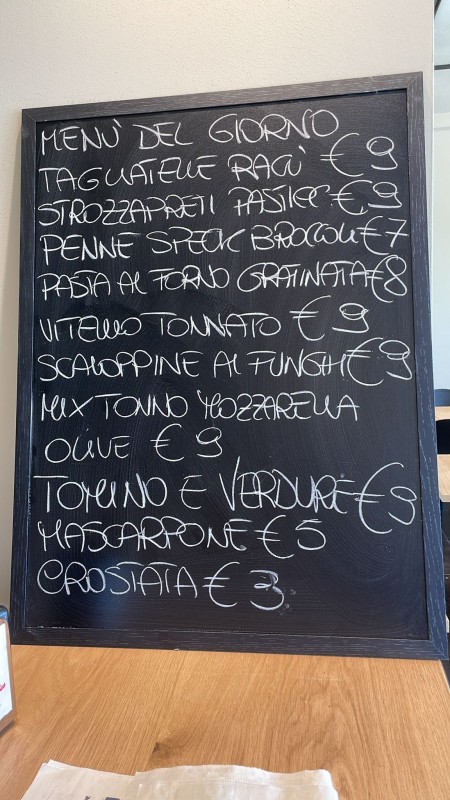 MENÙ DEL GIORNO
TAGLIATELLE RAGÙ €9
STROZZAPRETI PASTICC. €9
PENNE SPECK BROCCOLI €7
PASTA AL FORNO GRATINATA €8
VITELLO TONNATO €9
SCALOPPINE AI FUNGHI €9
MIX TONNO MOZZARELLA
OLIVE €9
TOMINO E VERDURE €9
MASCARPONE €5
CROSTATA €3